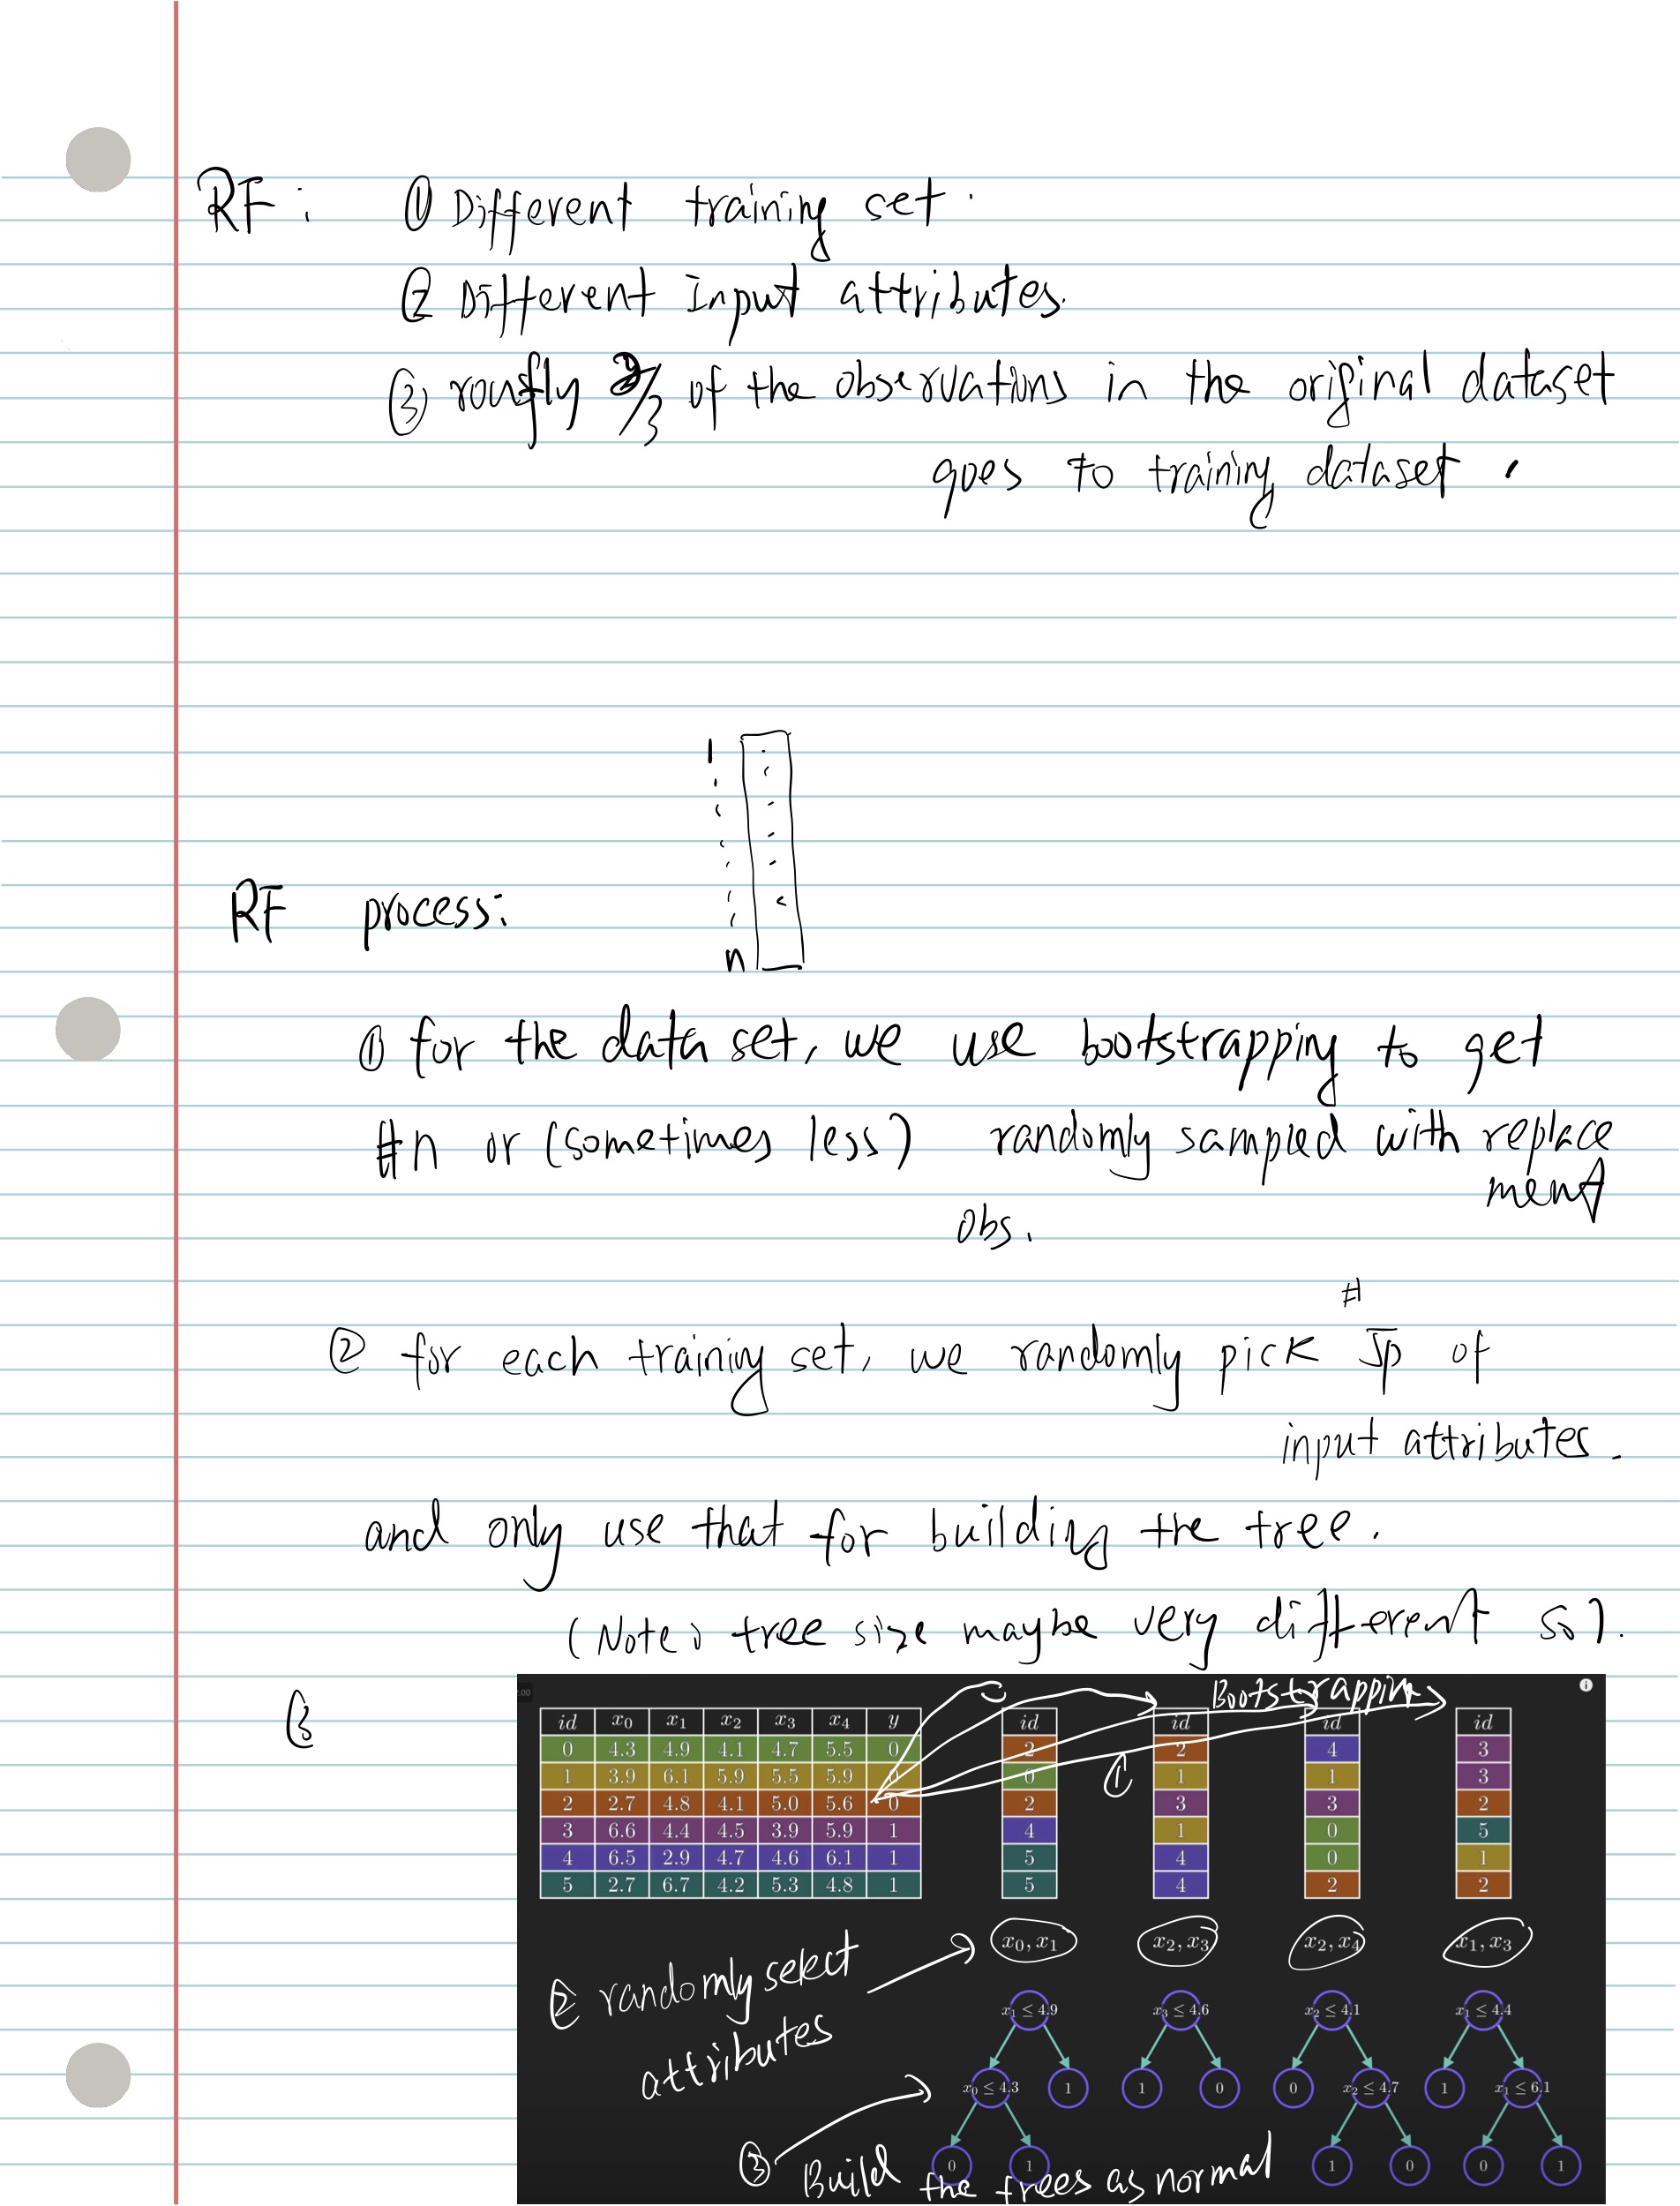 RF: ① Different training set.
② Different Input attributes.
③ roughly 2/3 of the observations in the original dataset
goes to training dataset.
1
n
RF process:
① for the data set, we use bootstrapping to get
#n or (sometimes less) randomly sampled with replace
ment
obs.
#
② for each training set, we randomly pick √p of
input attributes.
and only use that for building the tree.
(Note: tree size maybe very different so).
③
2.00
Bootstrapping
id x0 x1 x2 x3 x4 y
0 4.3 4.9 4.1 4.7 5.5 0
1 3.9 6.1 5.9 5.5 5.9 0
2 2.7 4.8 4.1 5.0 5.6 0
3 6.6 4.4 4.5 3.9 5.9 1
4 6.5 2.9 4.7 4.6 6.1 1
5 2.7 6.7 4.2 5.3 4.8 1
id id id id
2 2 4 3
0 1 1 3
2 3 3 2
4 1 0 5
5 4 0 1
5 4 2 2
①
x0, x1 x2, x3 x2, x4 x1, x3
② randomly select
attributes
x1 ≤ 4.9 x3 ≤ 4.6 x2 ≤ 4.1 x1 ≤ 4.4
x0 ≤ 4.3 1 1 0 0 x2 ≤ 4.7 1 x1 ≤ 6.1
0 1 1 0 0 1
③ Build the trees as normal